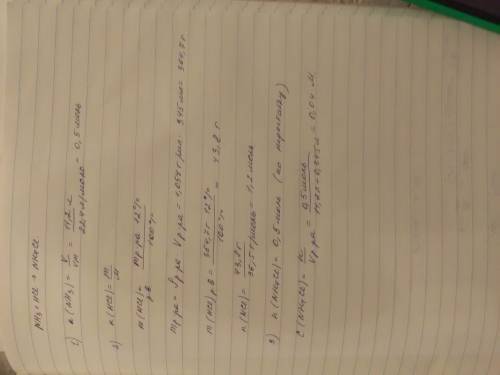 NH3 + HCl = NH4Cl
1) n(NH3) = V/Vm = 11,2 л / 22,4 л/моль = 0,5 моль
2) n(HCl) = m/M
m(HCl) р.в = mр-ра · 12% / 100%
mр-ра = ρр-ра · Vр-ра = 1,057 г/мл · 345 мл = 364,7 г
m(HCl) р.в = 364,7 г · 12% / 100% = 43,8 г
n(HCl) = 43,8 г / 36,5 г/моль = 1,2 моль
3) n(NH4Cl) = 0,5 моль (по недостатку)
C(NH4Cl) = n / Vр-ра = 0,5 моль / 11,2л+0,345л = 0,04 М